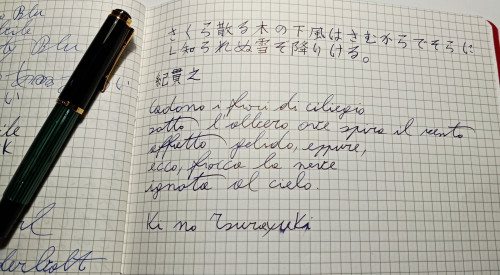 by Blu
さくら散る木の下風はさむからでそらに
し知られぬ雪そ降りける。
紀貫之
Cadono i fiori di ciliegio
sotto l'albero ove spira il vento
affretto gelido, eppure,
ecco, fiocca la neve
ignota al cielo.
Ki no Tsurayuki